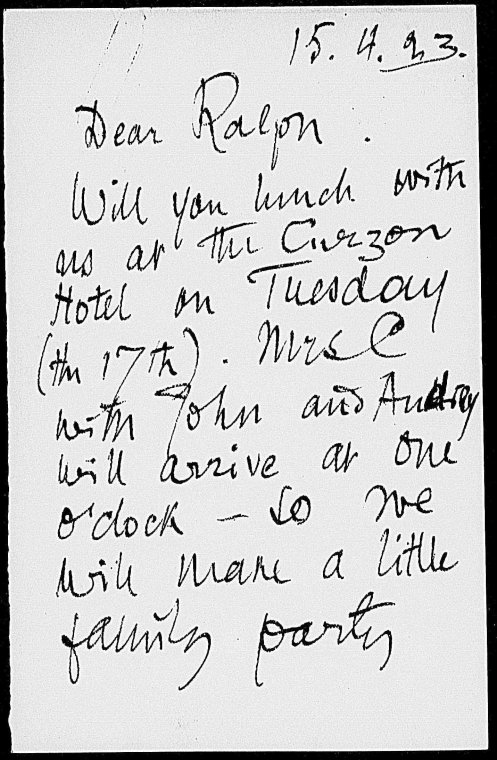 15.4.23.
Dear Ralph.
Will you lunch with
us at the Curzon
Hotel on Tuesday
(the 17th). Mrs C
with John and Audrey
will arrive at one
o'clock – so we
will make a little
family party